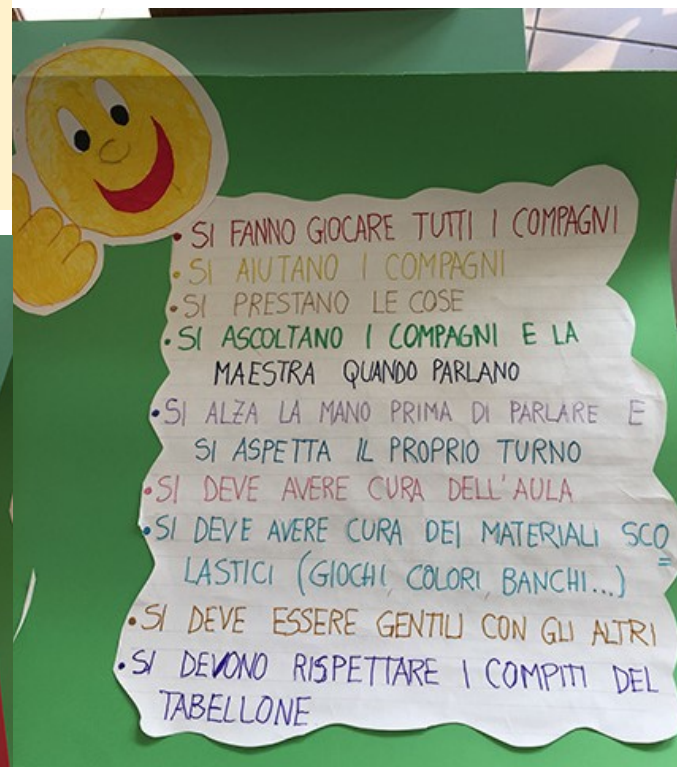 • SI FANNO GIOCARE TUTTI I COMPAGNI
• SI AIUTANO I COMPAGNI
• SI PRESTANO LE COSE
• SI ASCOLTANO I COMPAGNI E LA
MAESTRA QUANDO PARLANO
• SI ALZA LA MANO PRIMA DI PARLARE E
SI ASPETTA IL PROPRIO TURNO
• SI DEVE AVERE CURA DELL'AULA
• SI DEVE AVERE CURA DEI MATERIALI SCO=
LASTICI (GIOCHI, COLORI, BANCHI...)
• SI DEVE ESSERE GENTILI CON GLI ALTRI
• SI DEVONO RISPETTARE I COMPITI DEL
TABELLONE